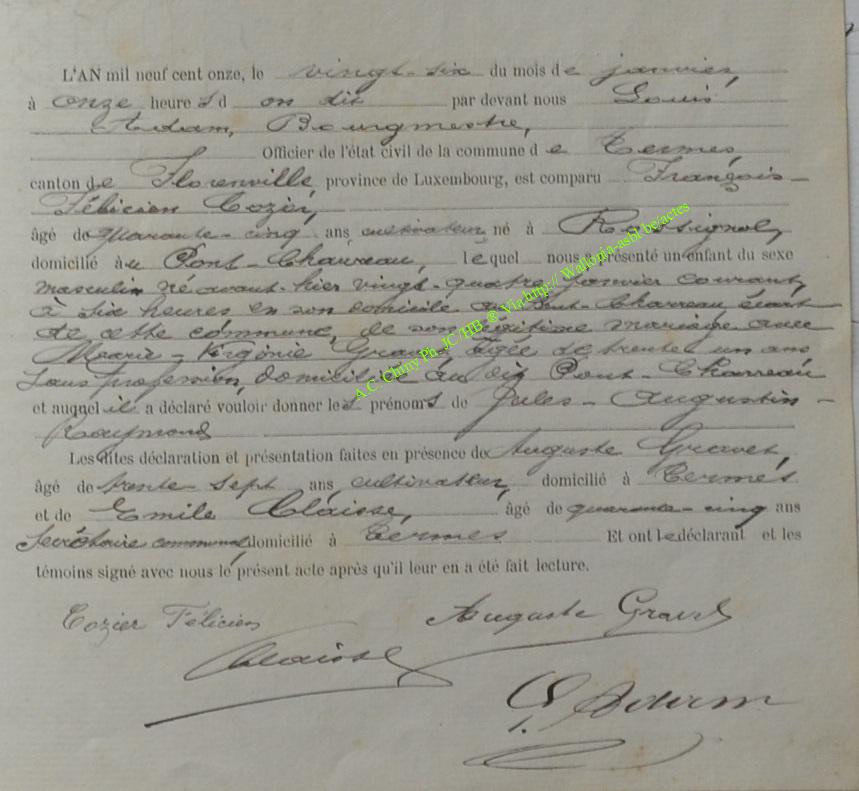 L'AN mil neuf cent onze, le vingt-six du mois de janvier,
à onze heures d on dit par devant nous Louis
Adam, Bourgmestre,
Officier de l'état civil de la commune de Termes,
canton de Florenville, province de Luxembourg, est comparu François-
Félicien Cozier,
âgé de quarante-cinq ans cultivateur, né à Rossignol,
domicilié au Pont-Charreau, lequel nous a présenté un enfant du sexe
masculin né avant-hier vingt-quatre janvier courant,
à six heures en son domicile au Pont-Charreau écart
de cette commune, de son légitime mariage avec
Marie-Virginie Gravet, âgée de trente un ans
sans profession, domiciliée au dit Pont-Charreau
et auquel il a déclaré vouloir donner les prénoms de Jules-Augustin-
Raymond
Les dites déclaration et présentation faites en présence de Auguste Gravet,
âgé de trente-sept ans, cultivateur, domicilié à Termes
et de Emile Claisse, âgé de quarante-cinq ans
Secrétaire communal domicilié à Termes Et ont le déclarant et les
témoins signé avec nous le présent acte après qu'il leur en a été fait lecture.
Cozier Félicien Auguste Gravet
Claisse
L. Adam
A.C. Chiny Ph. JC/HB ® Via http:// Wallonia-asbl be/actes